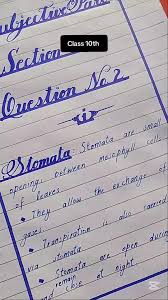 Subjective Part
Class 10th
Section
Question No.2
Stomata: Stomata are small
openings between mesophyll cells
of leaves.
• They allow the exchange of
gases.
• Transpiration is also carried
via stomata.
• Stomata are open during
and remain close at night